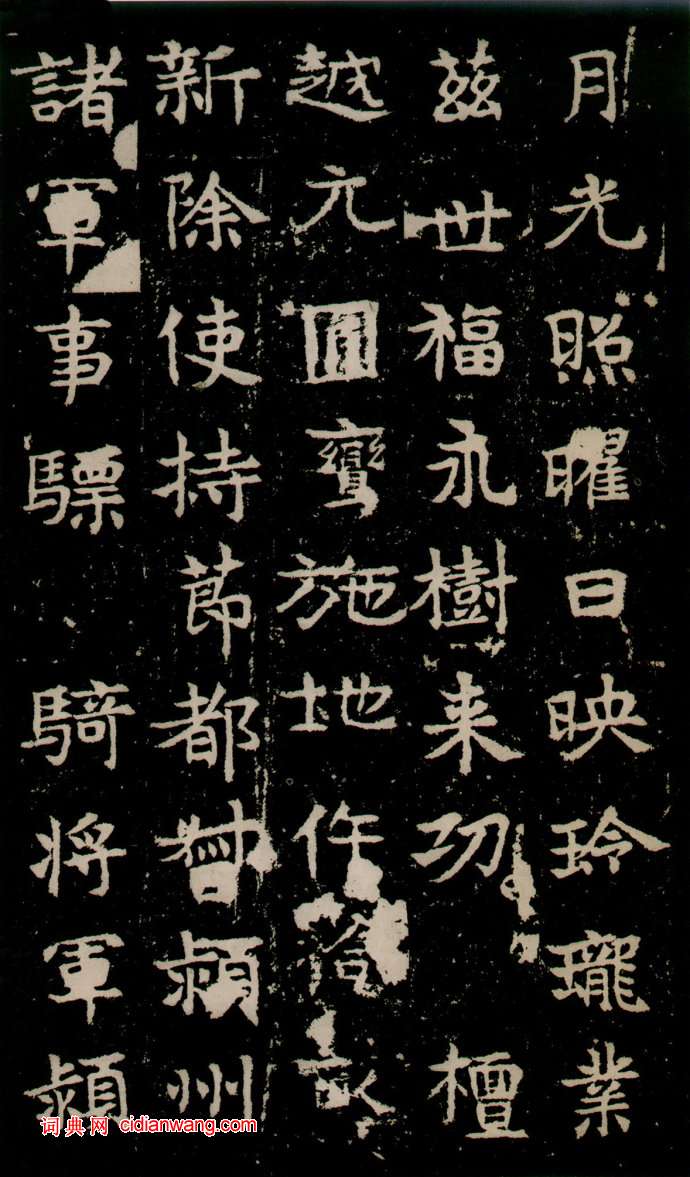 月光照曜日映玲瓏業
茲世福永樹来功 檀
越元施地
新除使持莭都督潁州
諸軍事驃 騎将軍潁
词典网 cidianwang.com